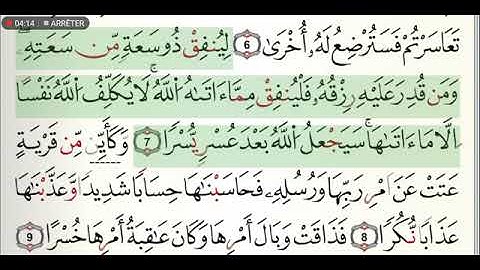 04:14 ARRÊTER
تَعَاسَرْتُمْ فَسَتُرْضِعُ لَهُۥٓ أُخْرَىٰ ٦ لِيُنفِقْ ذُو سَعَةٍ مِّن سَعَتِهِۦ
وَمَن قُدِرَ عَلَيْهِ رِزْقُهُۥ فَلْيُنفِقْ مِمَّآ ءَاتَىٰهُ ٱللَّهُ ۚ لَا يُكَلِّفُ ٱللَّهُ نَفْسًا
إِلَّا مَآ ءَاتَىٰهَا ۚ سَيَجْعَلُ ٱللَّهُ بَعْدَ عُسْرٍ يُسْرًا ٧ وَكَأَيِّن مِّن قَرْيَةٍ
عَتَتْ عَنْ أَمْرِ رَبِّهَا وَرُسُلِهِۦ فَحَاسَبْنَٰهَا حِسَابًا شَدِيدًا وَعَذَّبْنَٰهَا
عَذَابًا نُّكْرًا ٨ فَذَاقَتْ وَبَالَ أَمْرِهَا وَكَانَ عَٰقِبَةُ أَمْرِهَا خُسْرًا ٩